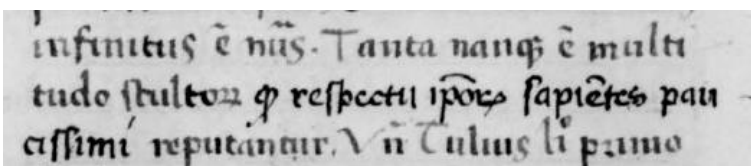 infinitus ē nūs. Tanta nanqꝫ ē multi
tudo ſtultoꝝ ꝙ reſpectu ipōꝝ ſapiētes pau
ciſſimi reputantur. Vn̄ Tulius li͛ primo